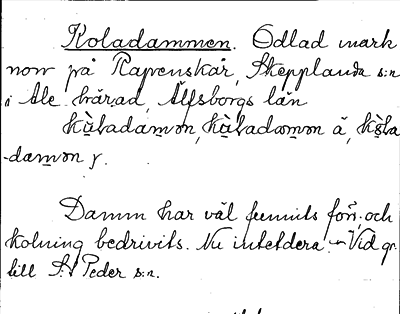 Koladammen. Odlad mark
norr på Rapenskår, Skepplanda s:n
i Ale härad, Älfsborgs län
kùladamǝn, kùladamǝn ä, kò̤la
-damǝn y.
Damm har väl funnits förr, och
kolning bedrivits. Nu intetdera. – Vid gr.
till S:t Peder s:n.